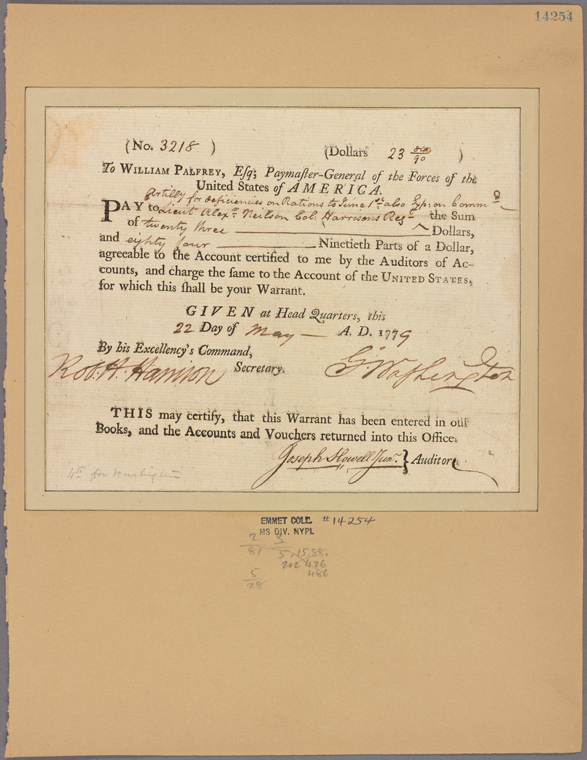 14254
(No. 3218 )
(Dollars 23 84/90 )
To WILLIAM PALFREY, Esq; Paymaster-General of the Forces of the
United States of AMERICA.
Artillry for deficiencies on Rations to June 1st. also Exp: on Commd
PAY to Lieut Alexr. Neilson Col. Harrisons Regt ^ the Sum
of twenty three Dollars,
and eighty four Ninetieth Parts of a Dollar,
agreeable to the Account certified to me by the Auditors of Ac-
counts, and charge the same to the Account of the UNITED STATES,
for which this shall be your Warrant.
GIVEN at Head Quarters, this
22 Day of May A. D. 1779
By his Excellency's Command,
Rob. H. Harrison Secretary.
G Washington
THIS may certify, that this Warrant has been entered in our
Books, and the Accounts and Vouchers returned into this Office.
Joseph Howell Junr. } Auditor
for Washington
EMMET COLL. #14254
MS DIV. NYPL